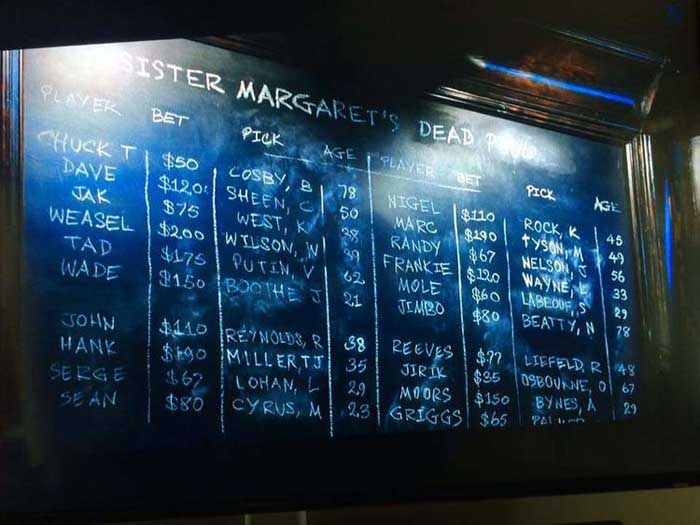 SISTER MARGARET'S DEAD
PLAYER BET PICK AGE
CHUCK T $50 COSBY, B 78
DAVE $120 SHEEN, C 50
JAK $75 WEST, K 38
WEASEL $200 WILSON, 39
TAD $175 PUTIN, V 62
WADE $150 BOOTHE J 21
JOHN $110 REYNOLDS, R 38
HANK $190 MILLER, TJ 35
SERGE $67 LOHAN, L 29
SEAN $80 CYRUS, M 23
PLAYER BET PICK AGE
NIGEL $110 ROCK, K 45
MARC $190 TYSON, M 49
RANDY $67 NELSON, J 56
FRANKIE $120 WAYNE, L 33
MOLE $60 LABEOUF, S 29
JIMBO $80 BEATTY, N 78
REEVES $77 LIEFELD, R 48
JIRIK $35 OSBOURNE, O 67
MOORS $150 BYNES, A 29
GRIGGS $65